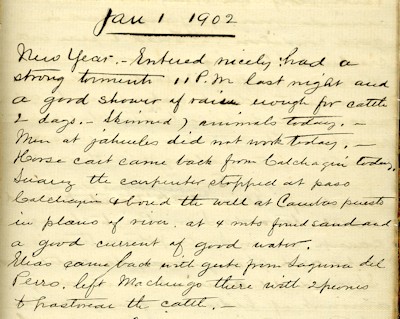 Jan 1 1902
New Year. - Entered nicely had a
strong tormenta 11 P.M last night and
a good shower of rain enough for cattle
2 days. - Skinned 7 animals today. -
Men at jahueles did not work today. -
Horse cart came back from Calchaqui today.
Suarez the carpenter stopped at paso
Calchaqui & bored the well at Cambas puesto
in plano of river. at 4 mts found sand and
a good current of good water.
Elias came back with gente from Laguna del
Perro. left Machingo there with 2 peones
to pastorear the cattle. -